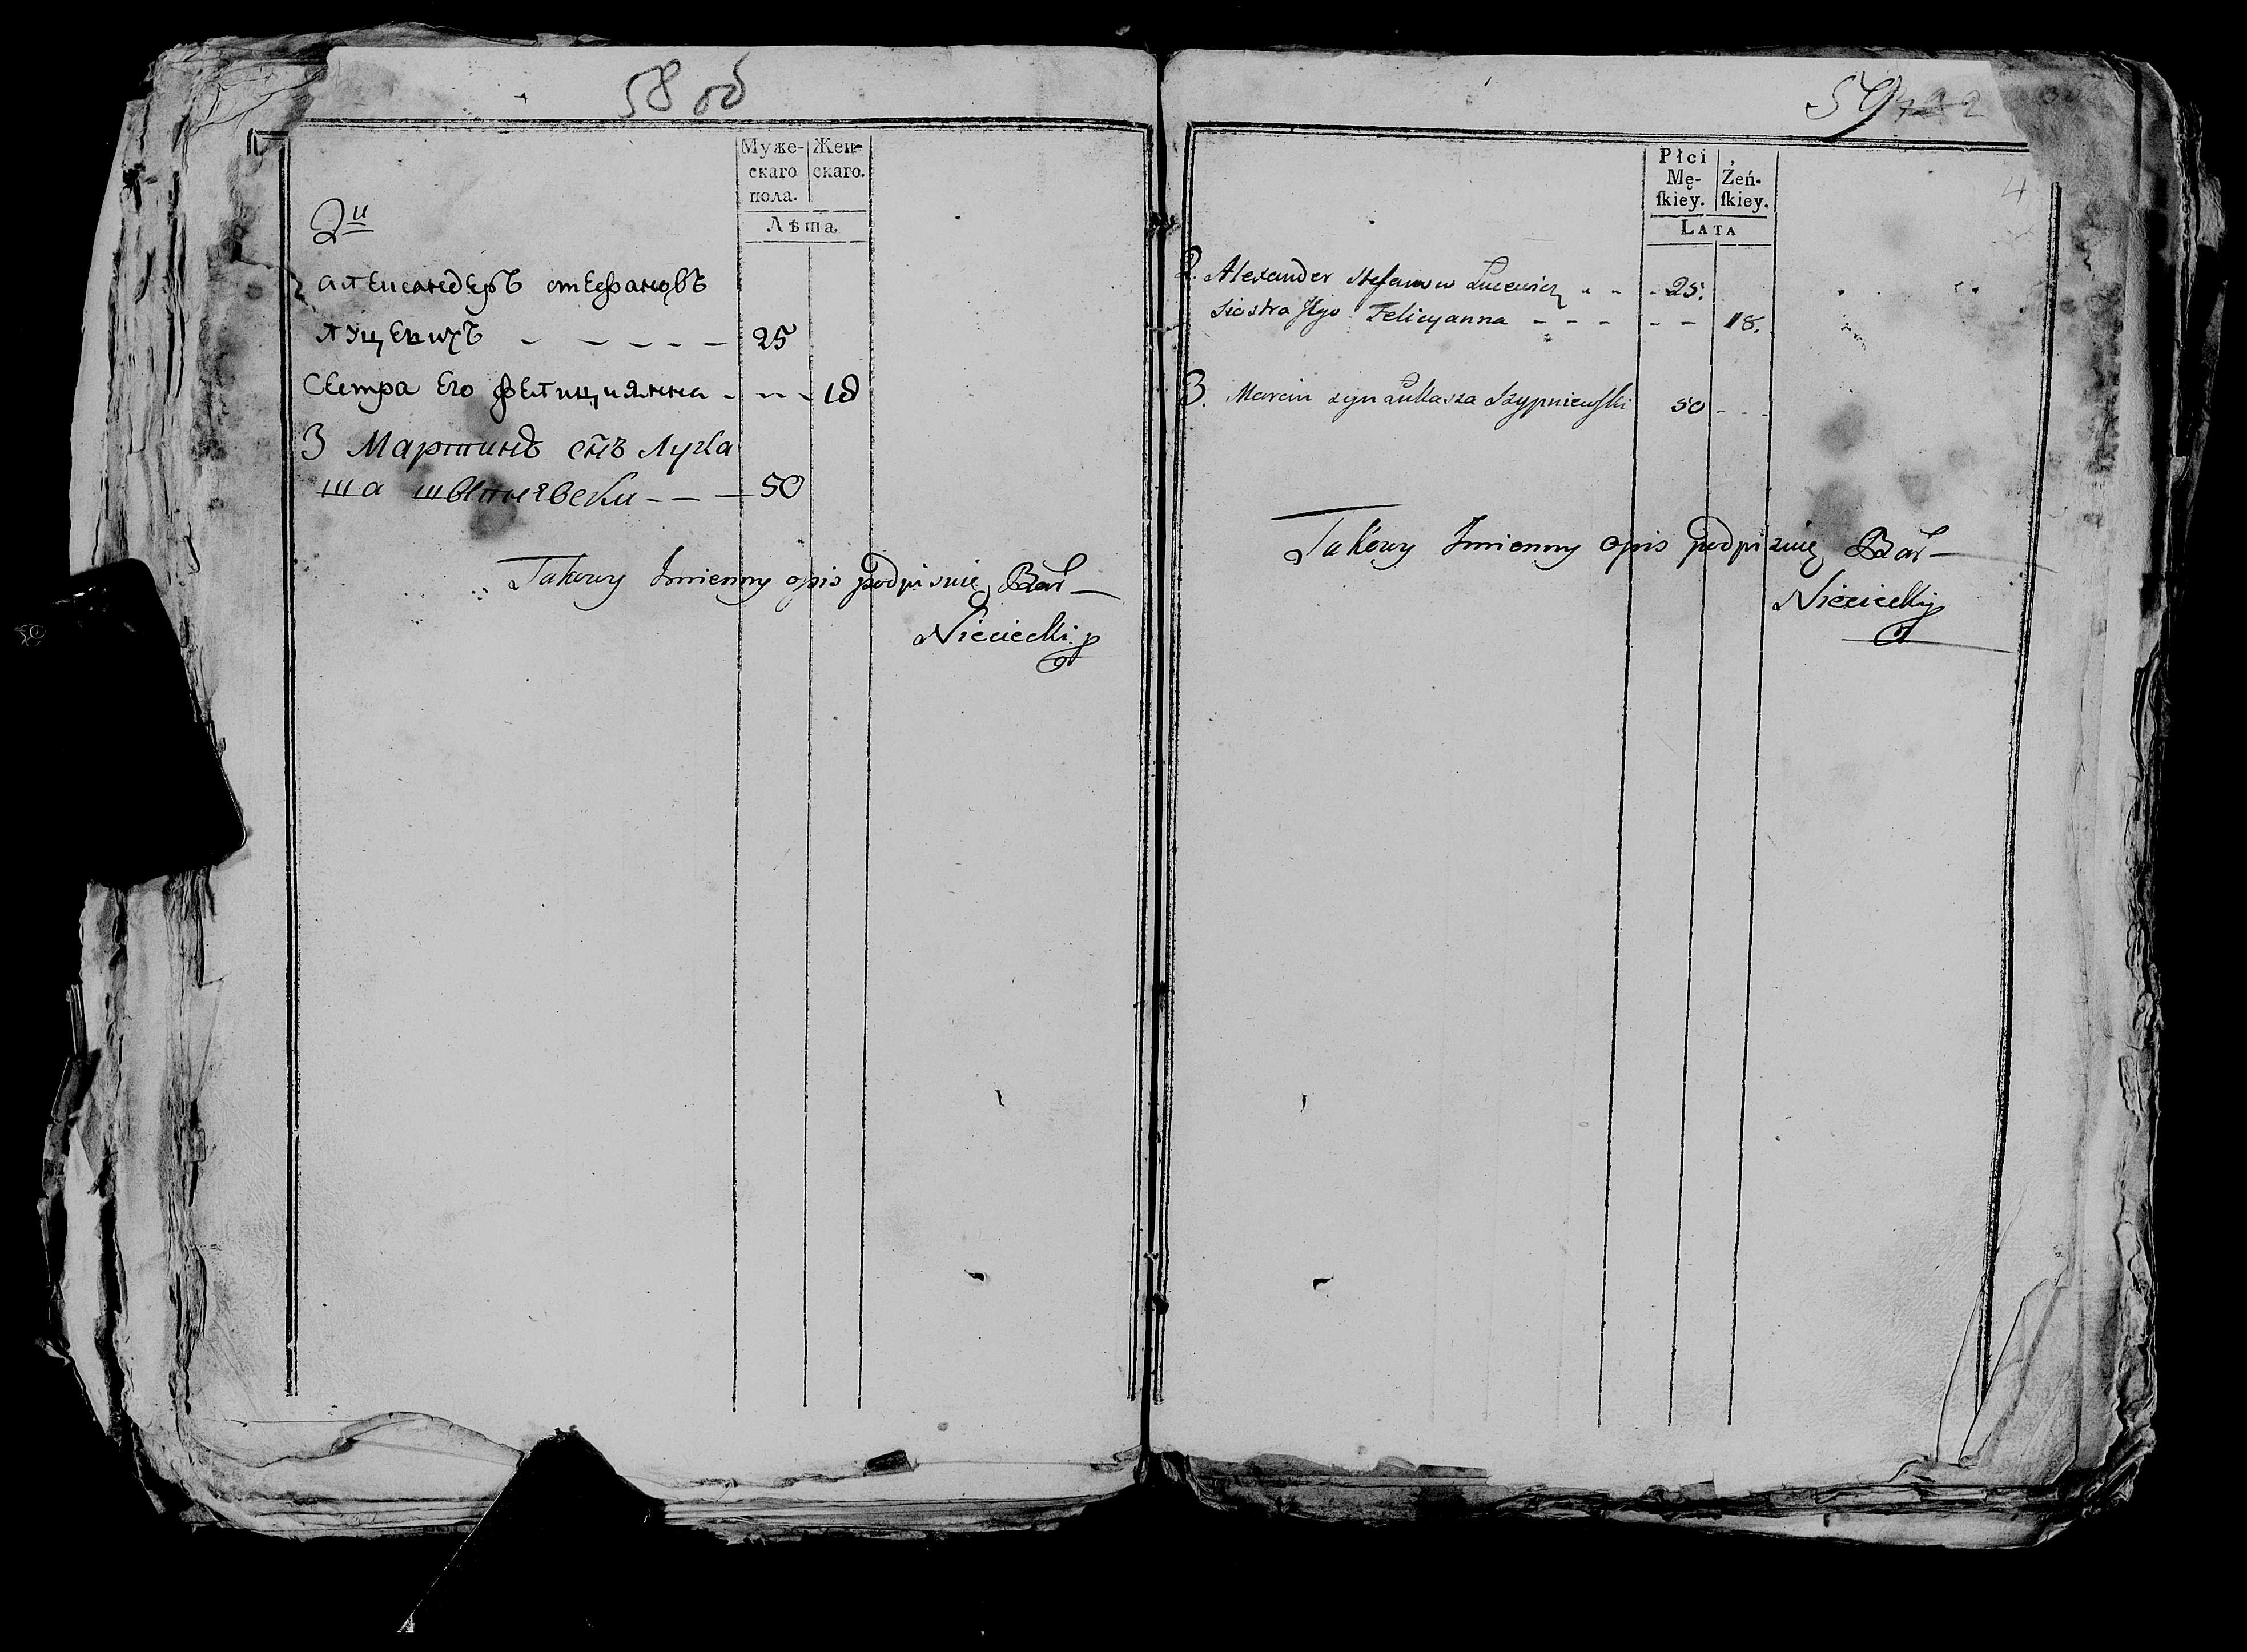 58 об
Муже-
скаго
пола.
Жен-
скаго.
Лѣта.
2й
алеисандеръ стефановъ
луцевичъ - - - - - 25
Сестра Его фелициянна - - - 18
3 Мартинъ снъ Лука
ша шыпнявски - - - 50
Takowy Imienny opis podpisuię
Nieciecki
59
Płci
Mę-
ſkiey.
Żeń-
ſkiey.
LATA
2. Alexander Stefanow Lucewicz - - - 25.
Siostra Jego Felicyanna - - - - - 18.
3. Marcin syn Łukasza Szypniewſki 50 - - -
Takowy Imienny opis podpisuię
Nieciecki